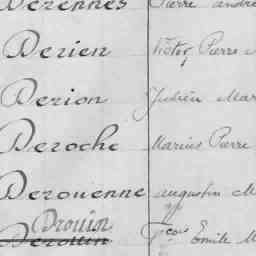 Derennes Pierre André
Derien Victor Pierre
Derion Julien Mar
Deroche Marius Pierre
Derouenne Augustin M
Drouin
Derouin Fçois Emile M